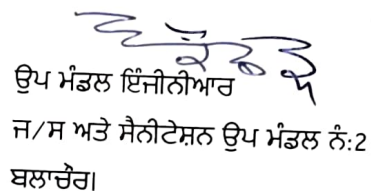 ਉਪ ਮੰਡਲ ਇੰਜੀਨੀਆਰ
ਜ/ਸ ਅਤੇ ਸੈਨੀਟੇਸ਼ਨ ਉਪ ਮੰਡਲ ਨੰ:2
ਬਲਾਚੌਰ।